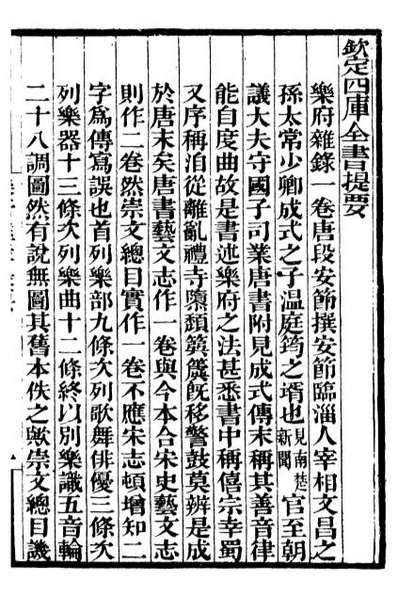 欽定四庫全書提要
樂府雜錄一卷唐段安節撰安節臨淄人宰相文昌之
孫太常少卿成式之子温庭筠之壻也見南楚新聞官至朝
議大夫守國子司業唐書附見成式傳末稱其善音律
能自度曲故是書述樂府之法甚悉書中稱僖宗幸蜀
又序稱洎從離亂禮寺隳頽簨簴旣移警鼓莫辨是成
於唐末矣唐書藝文志作一卷與今本合宋史藝文志
則作二卷然崇文總目實作一卷不應宋志頓增知二
字爲傳寫誤也首列樂部九條次列歌舞俳優三條次
列樂器十三條次列樂曲十二條終以别樂識五音輪
二十八調圖然有說無圖其舊本佚之歟崇文總目譏